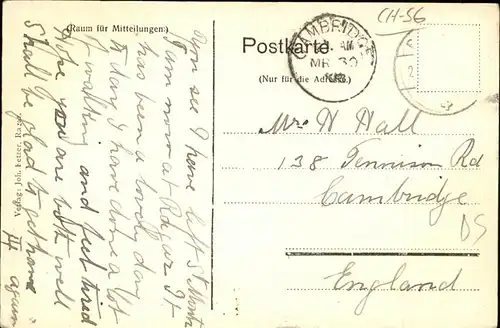 (Raum für Mitteilungen.)
You see I have left St Moritz
& am now at Ragaz It
has been a lovely day
to day I have done a lot
of walking and feel tired
Hope you are both well
Shall be glad to get home
again
Verlag: Joh. Fetter, Ragaz
Postkarte
(Nur für die Adresse.)
CAMBRIDGE
AM
MR 30
CH-56
Mrs H Hall
138 Tennison Rd
Cambridge
DS
England